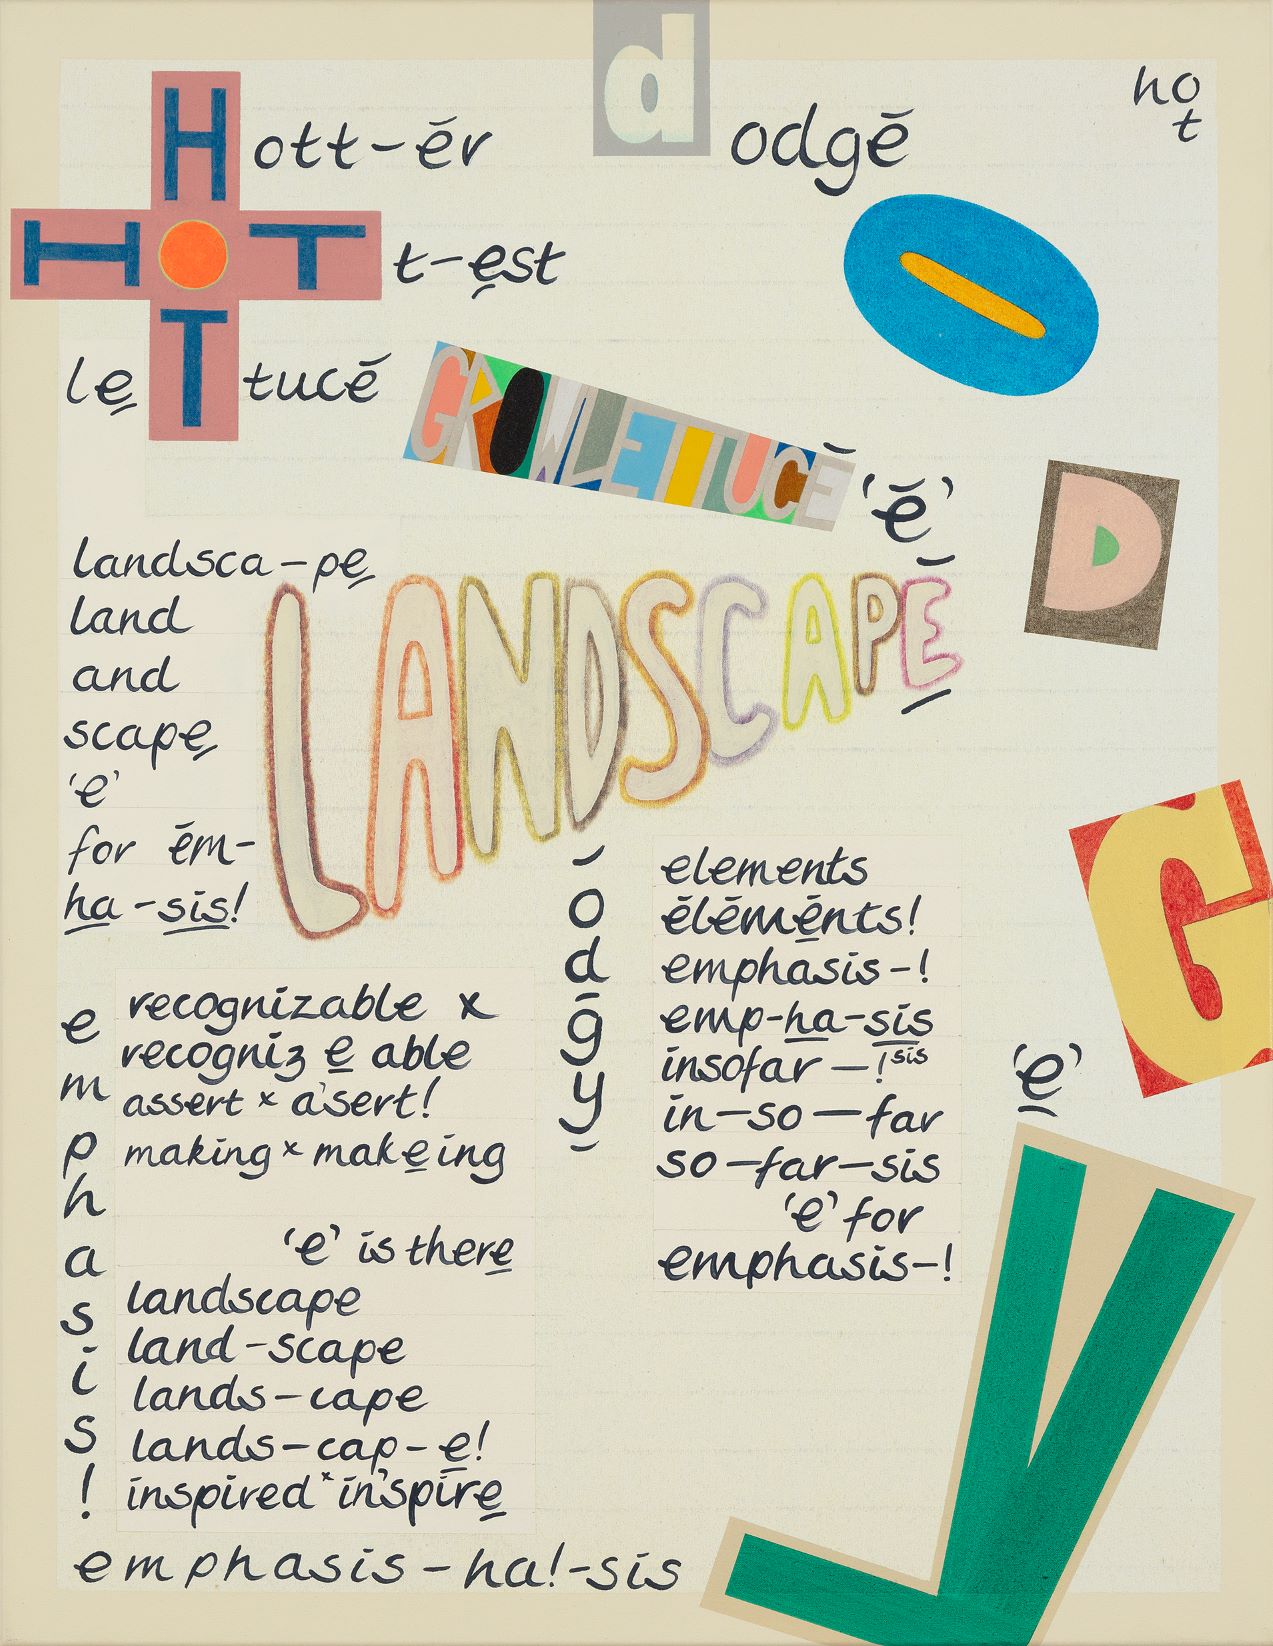 d
odgē
ho
t
HOTT
HOT
ott-ēr
t-est
le
tucé
GROWLETTUCĒ
'ē'
O
D
G
Y
landsca-pe
land
and
scape
'e'
for ēm-
ha-sis!
LANDSCAPE
odḡy
elements
ēlēmēnts!
emphasis-!
emp-ha-sis
insofar -!sis
in-so-far
so-far-sis
'e' for
emphasis-!
'e'
emphasis!
recognizable x
recogniz e able
assert x a'sert!
making x makeing
'e' is there
landscape
land-scape
lands-cape
lands-cap-e!
inspired x in'spire
emphasis-ha!-sis